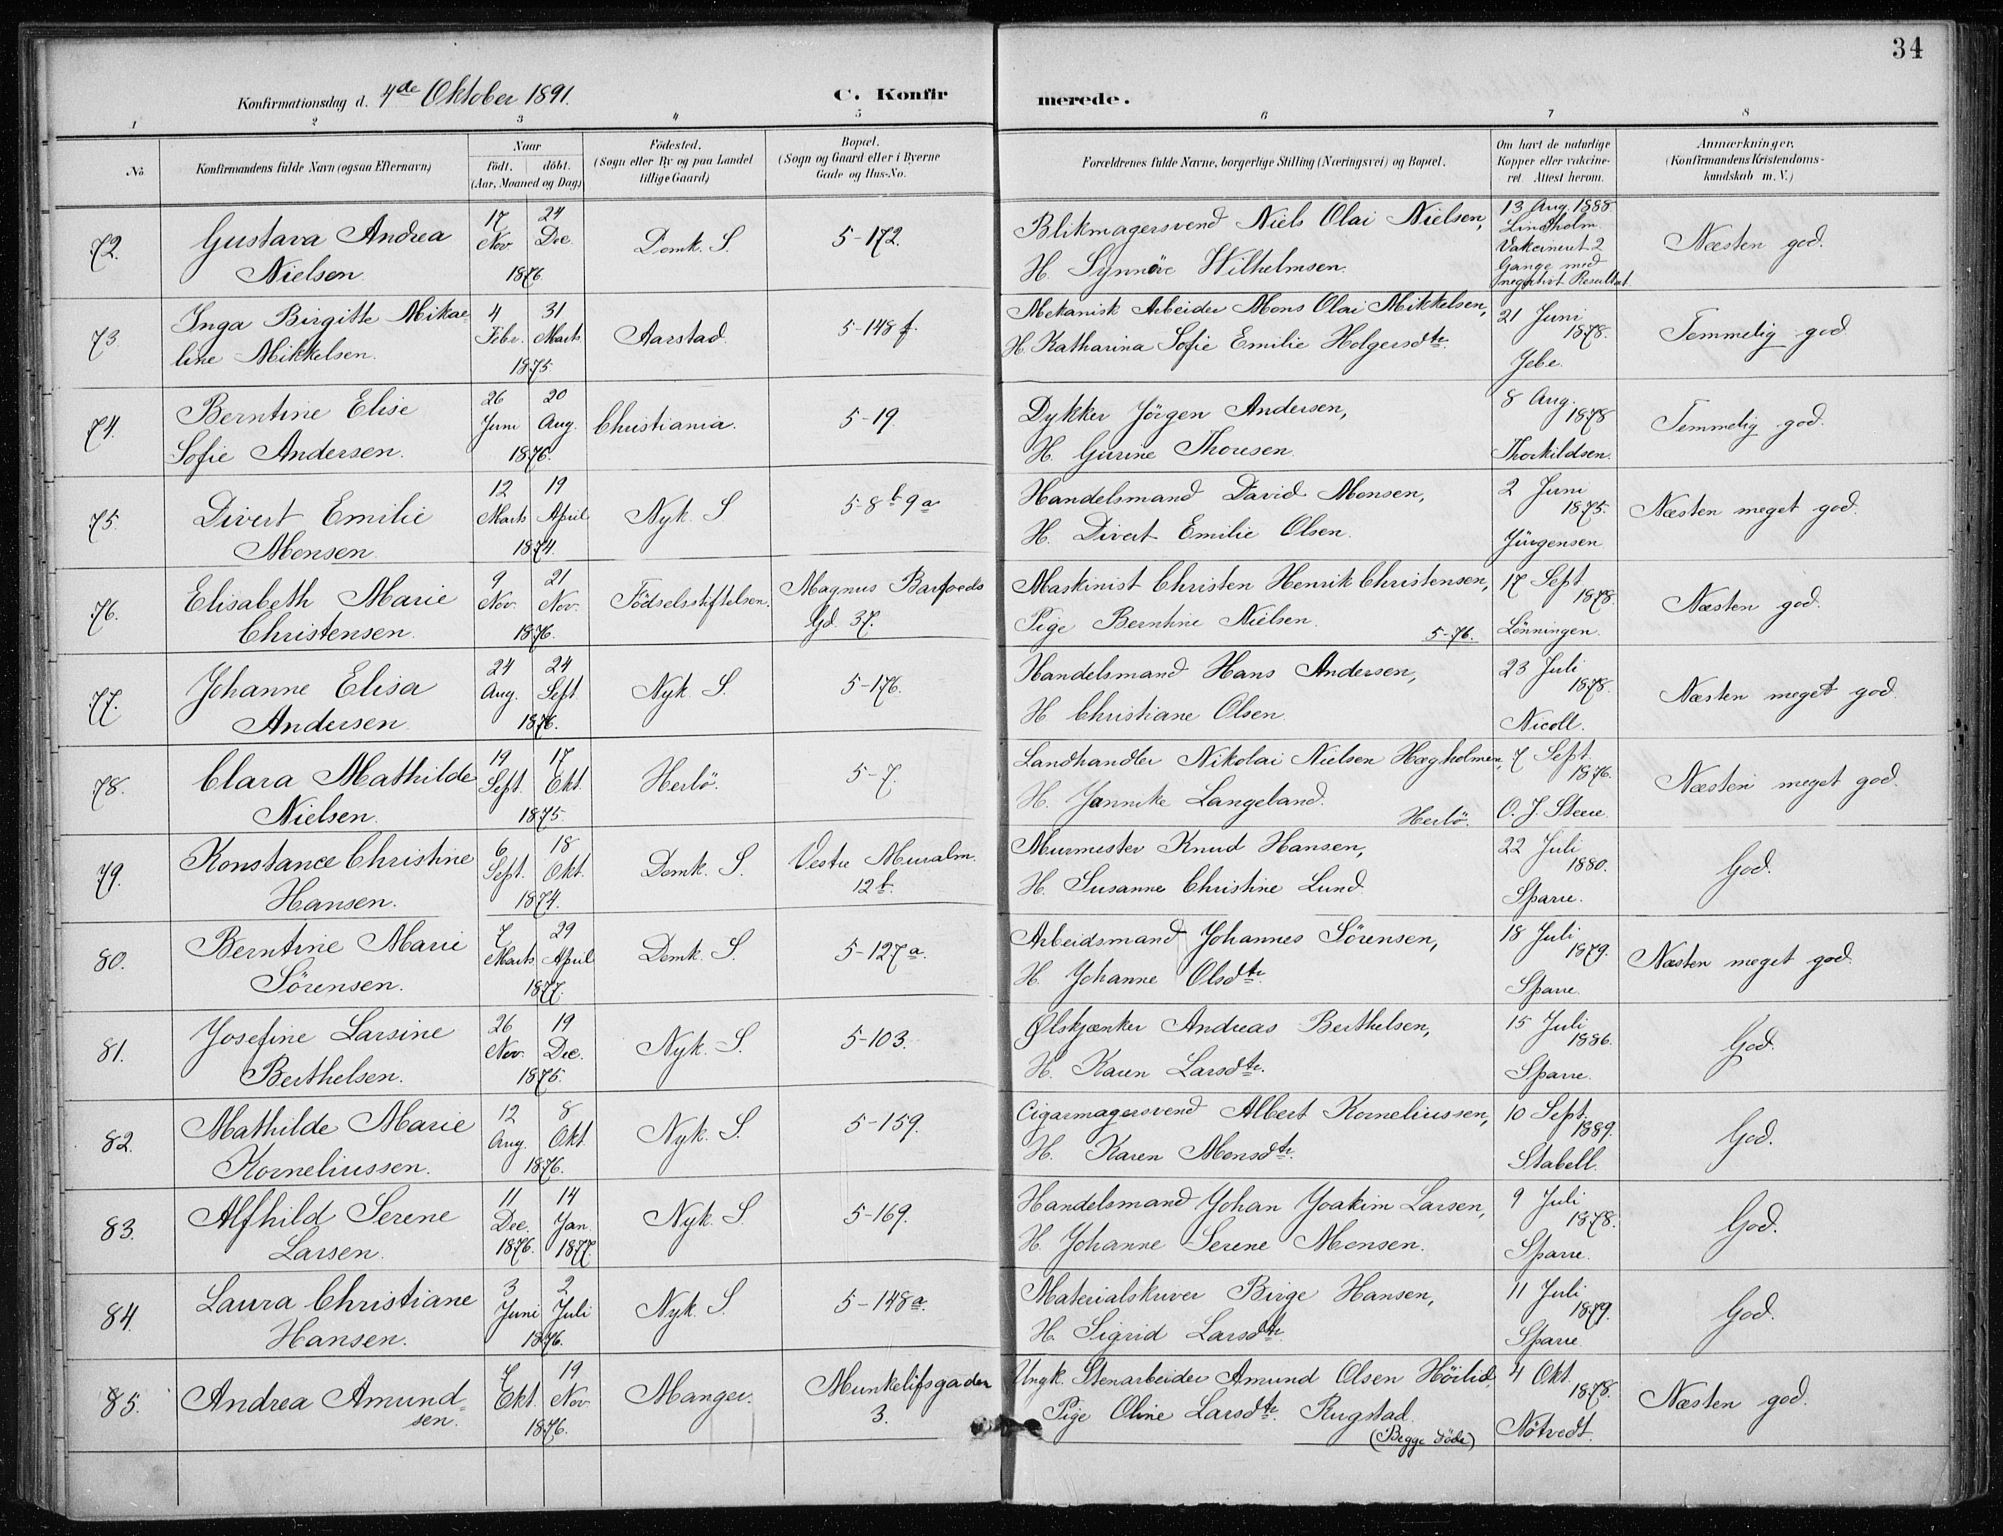 34
Konfirmationsdag d. 4de Oktober 1891.
C. Konfirmerede.
1 2 3 4 5 6 7 8
No
Konfirmandens fulde Navn (ogsaa Efternavn)
Naar
födt. döbt.
(Aar, Maaned og Dag)
Födested.
(Sogn eller By og paa Landet
tillige Gaard)
Bopæl.
(Sogn og Gaard eller i Byerne
Gade og Hus-No.
Forældrenes fulde Navne, borgerlige Stilling (Næringsvei) og Bopæl.
Om havt de naturlige
Kopper eller vakcine-
ret. Attest herom.
Anmærkninger.
(Konfirmandens Kristendoms-
kundskab m. V.)
72. Gustava Andrea
Nielsen
17 Nov. 24 Dec.
1876.
Domk. S
5-172.
Blikmagersvend Niels Olai Nielsen,
H. Synnöve Wilhelmsen.
13 Aug. 1888
Lindholm
Vakcineret 2
Gange med
negativt Resultat
Næsten god.
73. Inga Birgitte Mikae-
line Mikkelsen.
4 Febr. 31 Marts
1875.
Aarstad.
5-148 f.
Mekanisk Arbeider Mons Olai Mikkelsen,
H. Katharina Sofie Emilie Holgersdtr.
21 Juni
1878.
Jebe.
Temmelig god.
74. Berntine Elise
Sofie Andersen.
26 Juni 20 Aug.
1876.
Christiania.
5-19.
Dykker Jörgen Andersen,
H. Gurine Thoresen.
8 Aug.
1878
Thorkildsen.
Temmelig god.
75. Divert Emilie
Monsen.
12 Marts 19 April
1874.
Nyk. S
5-8 b 9 a
Handelsmand David Monsen,
H. Divert Emilie Olsen.
2 Juni
1875.
Jürgensen
Næsten meget god.
76. Elisabeth Marie
Christensen.
9 Nov. 21 Nov.
1876.
Födselsstiftelsen.
Magnus Barfoeds
Gd. 37.
Maskinist Christen Henrik Christensen,
Pige Berntine Nielsen. 5-76.
17 Sept
1878.
Lønningen.
Næsten god.
77. Johanne Elisa
Andersen.
24 Aug. 24 Sept
1876.
Nyk. S.
5-176.
Handelsmand Hans Andersen,
H. Christiane Olsen.
23 Juli
1878.
Nicoll.
Næsten meget god.
78. Clara Mathilde
Nielsen.
19 Sept. 17 Okt.
1875.
Herlö.
5-7.
Landhandler Nikolai Nielsen Hægholmen,
H. Jannike Langeland.
Herlö.
7 Sept.
1876.
O. J. Steen.
Næsten meget god.
79. Konstance Christine
Hansen.
6 Sept. 18 Okt.
1874.
Domk. S.
Vestre Muralm.
12 b.
Murmester Knud Hansen,
H. Susanne Christine Lund.
22 Juli
1880.
Sparre.
God.
80. Berntine Marie
Sörensen.
7 Marts 29 April
1877.
Domk. S.
5-127 a.
Arbeidsmand Johannes Sörensen,
H. Johanne Olsdtr.
18 Juli
1879.
Sparre.
Næsten meget god.
81. Josefine Larsine
Berthelsen.
26 Nov. 19 Dec.
1875.
Nyk. S.
5-103.
Ølskjænker Andreas Berthelsen,
H. Karen Larsdtr.
15 Juli
1886.
Sparre.
God.
82. Mathilde Marie
Korneliussen.
12 Aug. 8 Okt.
1876.
Nyk. S.
5-159.
Cigarmagersvend Albert Korneliussen,
H. Karen Monsdtr.
10 Sept.
1889.
Stabell.
God.
83. Alfhild Serene
Larsen.
11 Dec. 1876. 14 Jan 1877.
Nyk. S.
5-169.
Handelsmand Johan Joakim Larsen,
H. Johanne Serene Monsen.
9 Juli
1878.
Sparre.
God.
84. Laura Christiane
Hansen.
3 Juni 2 Juli
1876.
Nyk. S.
5-148 a.
Materialskriver Birge Hansen,
H. Sigrid Larsdtr.
11 Juli
1879.
Sparre.
God.
85. Andrea Amund-
sen.
7 Okt. 19 Nov.
1876.
Manger.
Munkelifsgaden
3.
Ungk. Stenarbeider Amund Olsen Höilid,
Pige Oline Larsdtr. Rugstad.
(Begge döde)
4 Okt.
1878.
Nötvedt.
Næsten god.